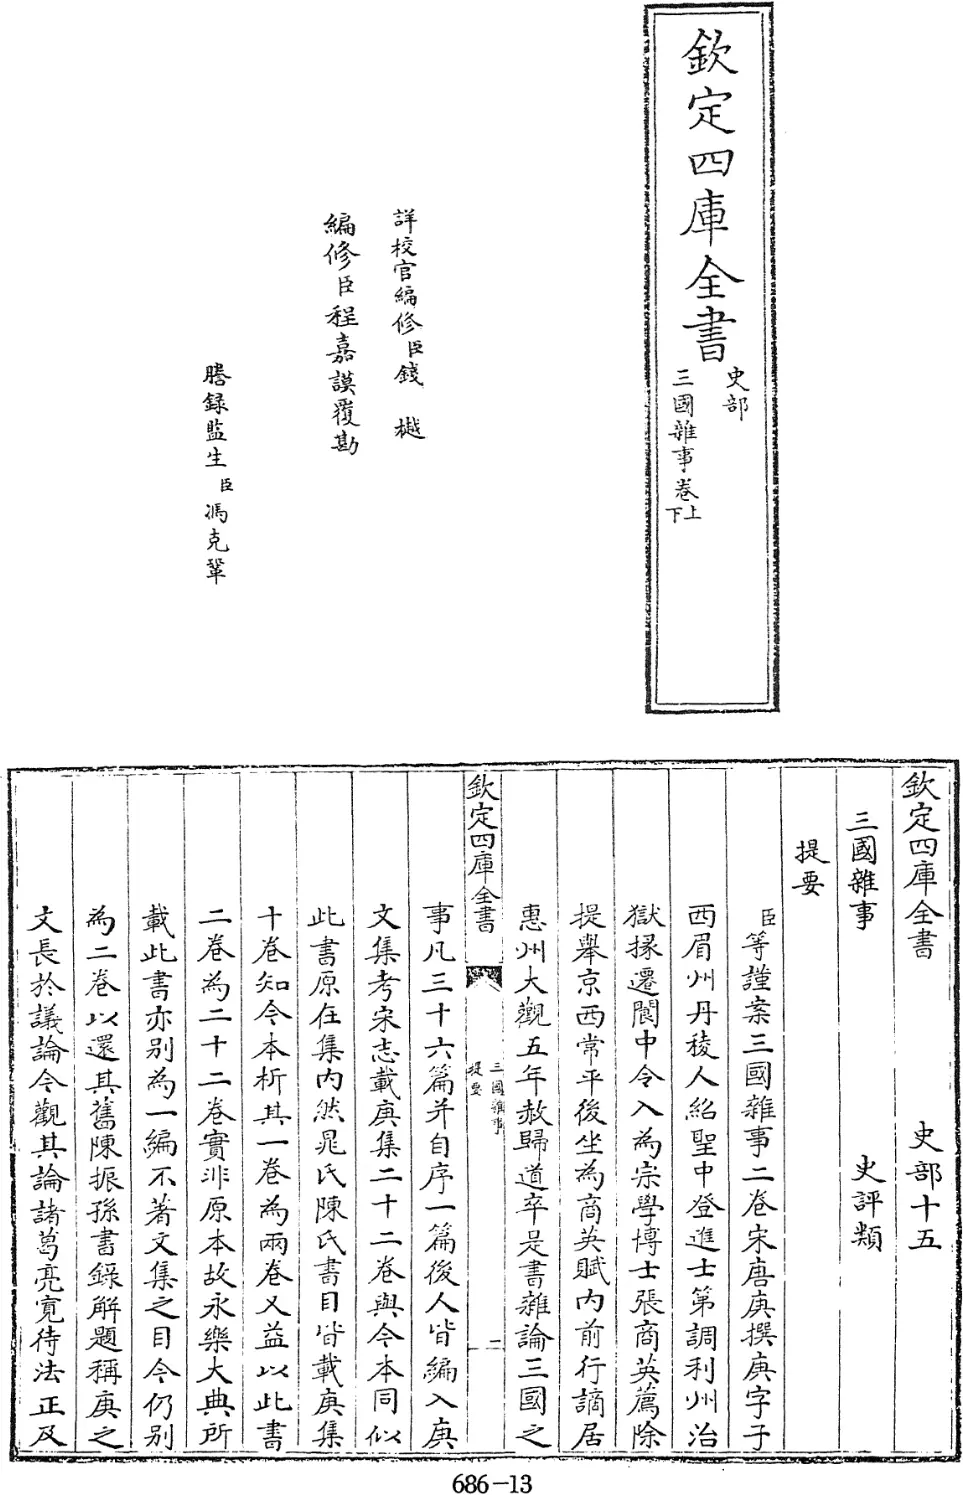 欽定四庫全書
史部
三國雜事卷上下
詳校官編修臣錢樾
編修臣程嘉謨覆勘
謄錄監生臣馮克鞏
欽定四庫全書 史部十五
三國雜事 史評類
提要
臣等謹案三國雜事二卷宋唐庚撰庚字子
西眉州丹稜人紹聖中登進士第調利州治
獄掾遷閬中令入為宗學博士張商英薦除
提舉京西常平後坐為商英賦內前行謫居
惠州大觀五年赦歸道卒是書雜論三國之
欽定四庫全書
三國雜事
提要
一
事凡三十六篇并自序一篇後人皆編入庚
文集考宋志載庚集二十二卷與今本同似
此書原在集內然晁氏陳氏書目皆載庚集
十卷知今本析其一卷為兩卷又益以此書
二卷為二十二卷實非原本故永樂大典所
載此書亦別為一編不著文集之目今仍別
為二卷以還其舊陳振孫書錄解題稱庚之
文長於議論今觀其論諸葛亮寬待法正及
686-13